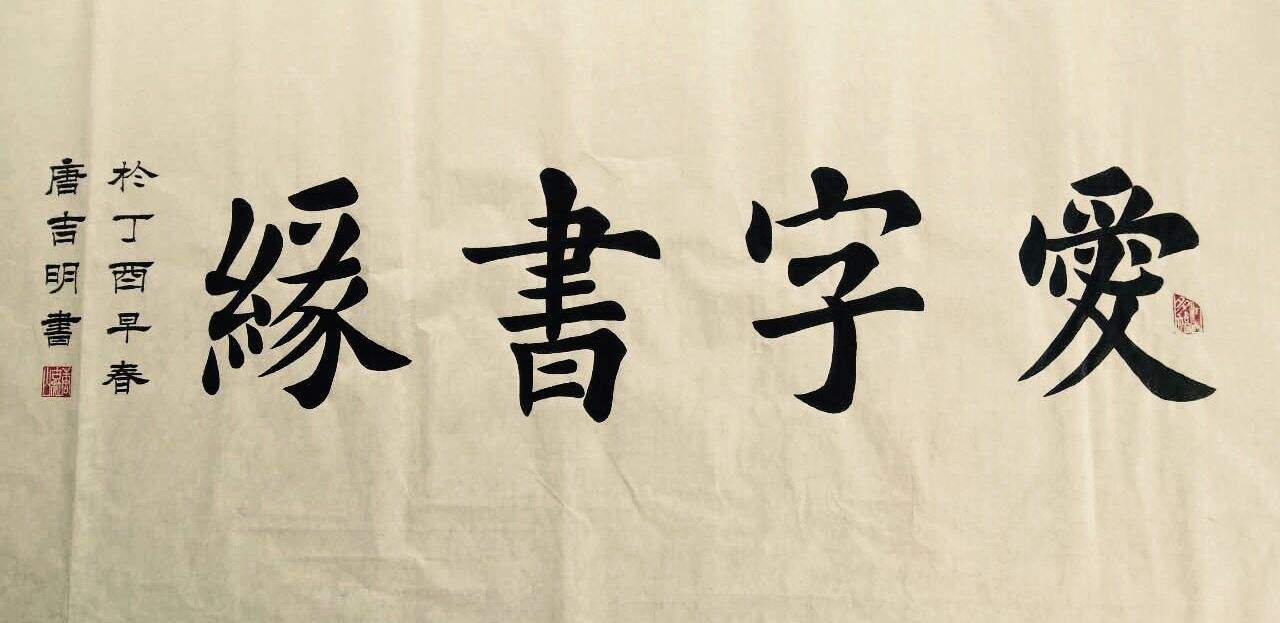 愛字書緣
於丁酉早春
唐吉明書